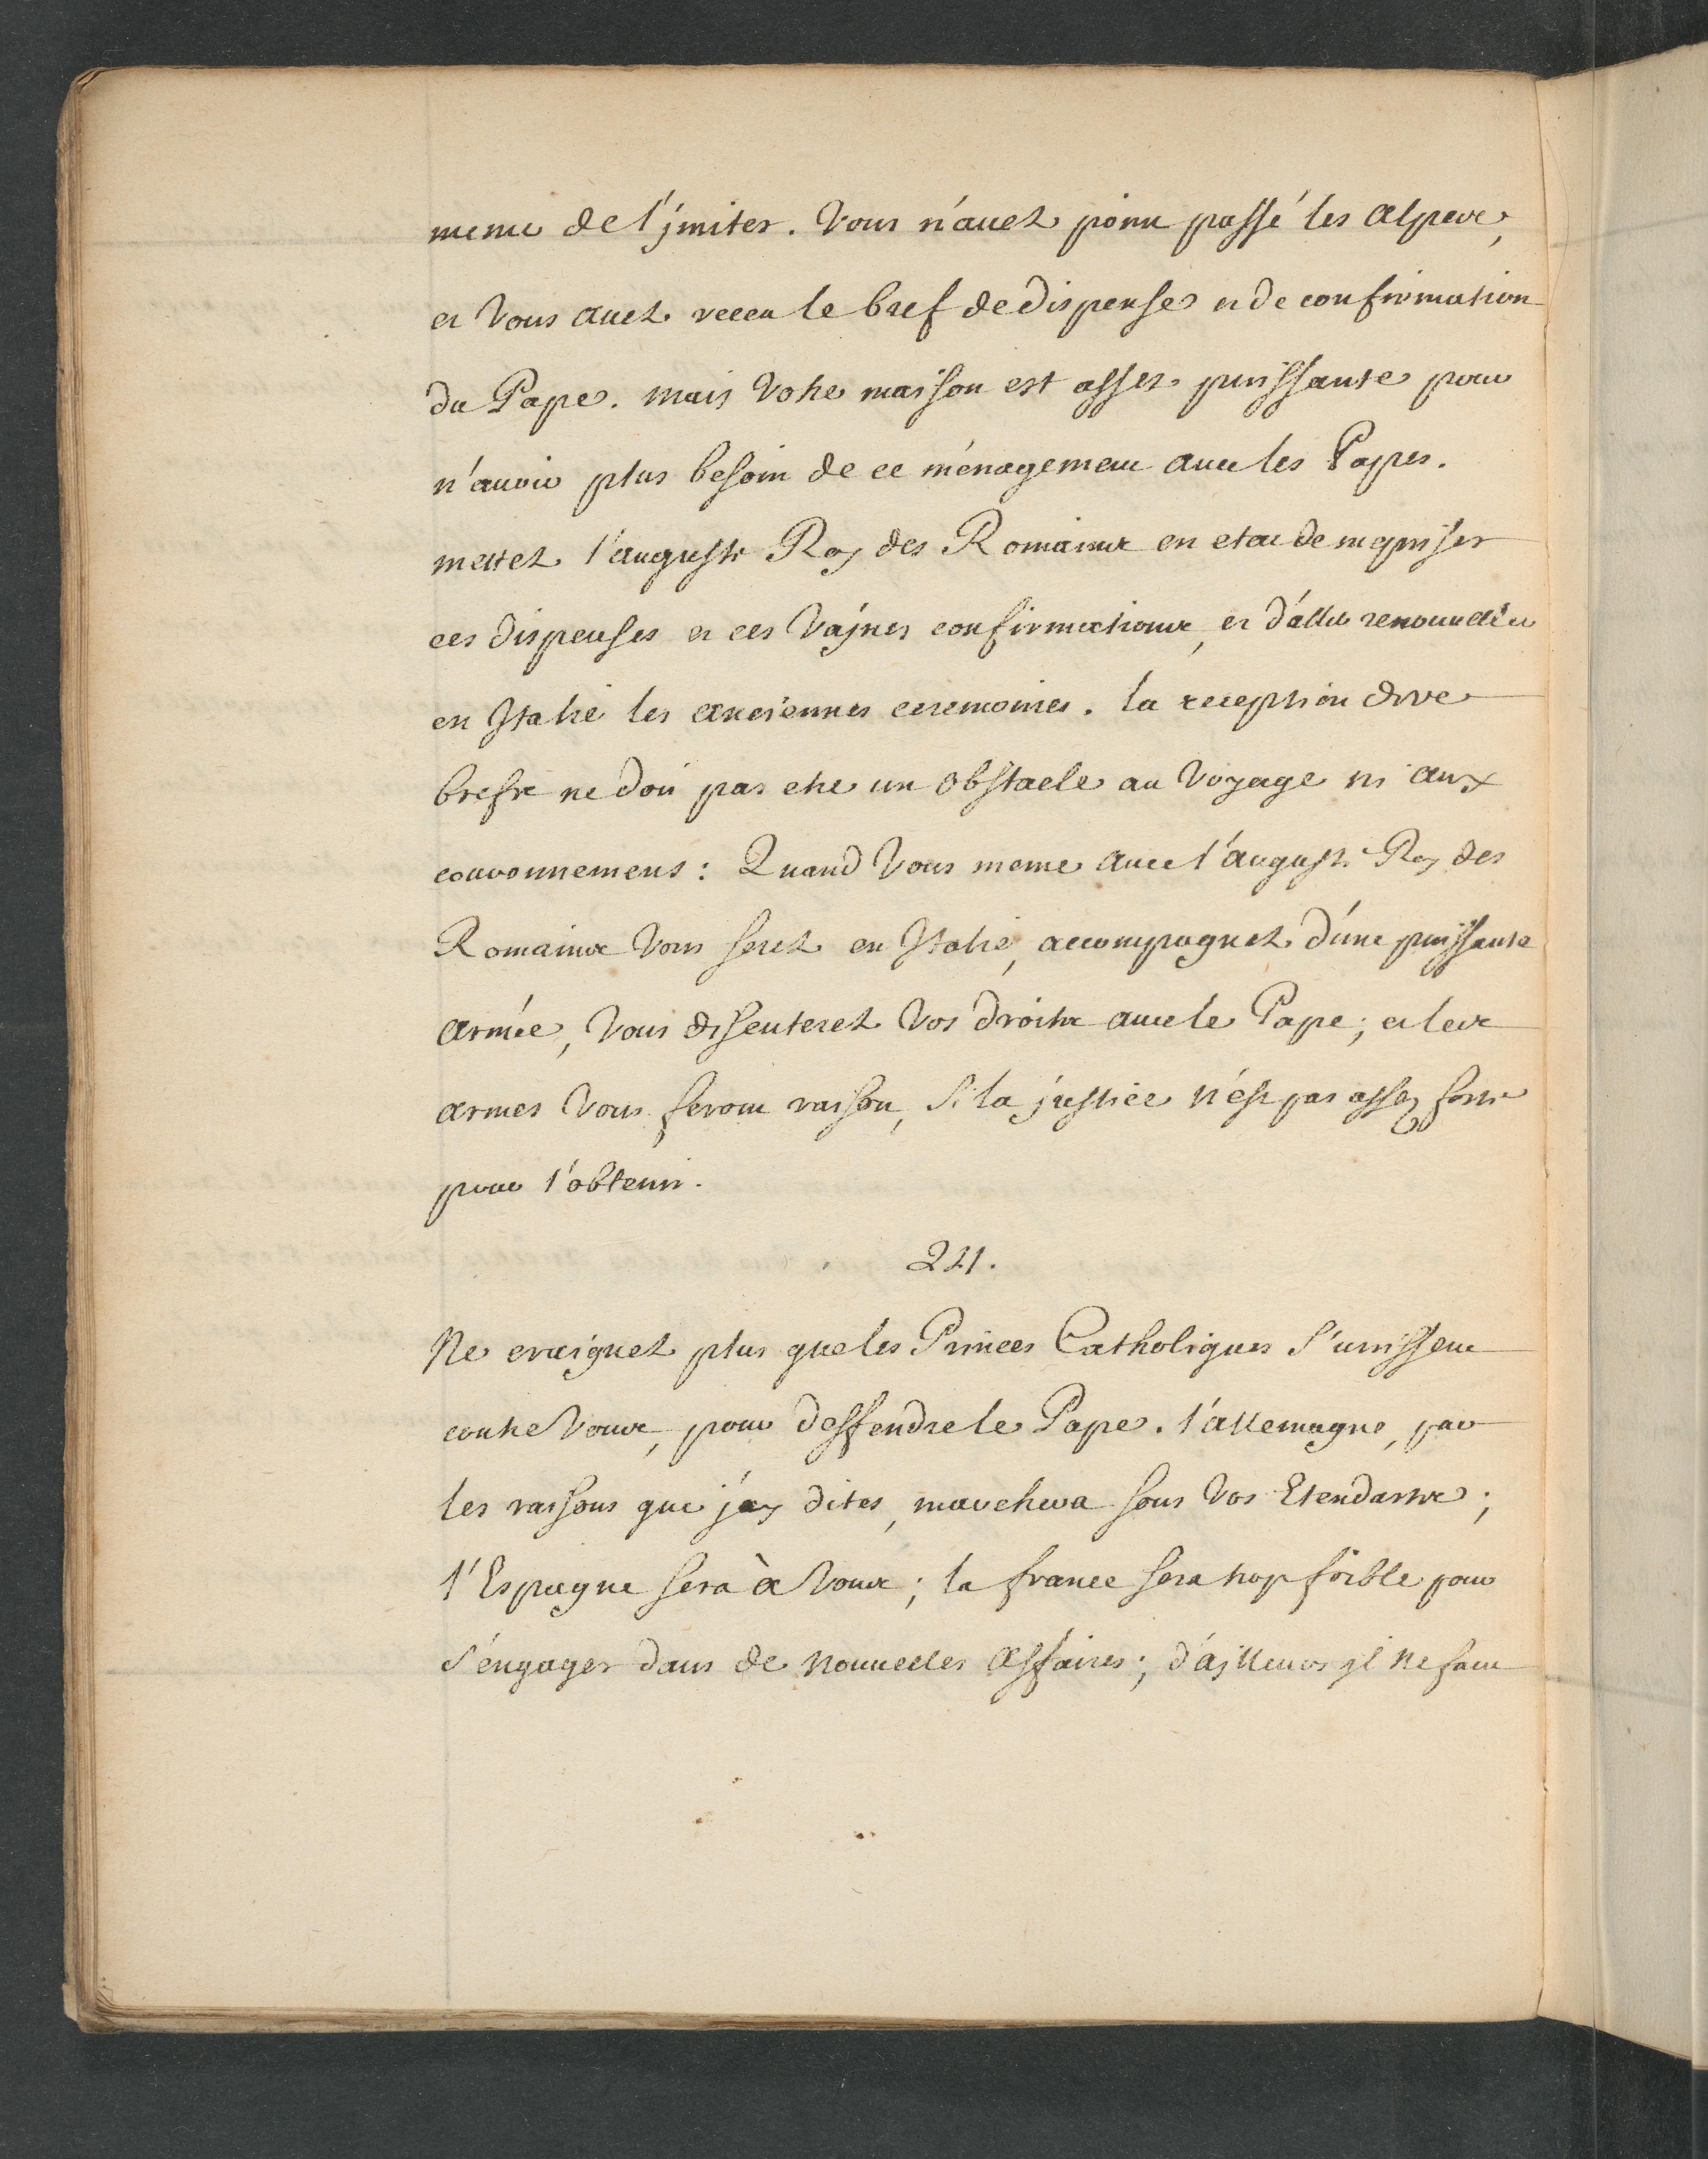 meme de l'jmiter. Vous n'auez point passé les alpes,
et Vous auez receu le bref de dispense et de confirmation
du Pape. mais Votre maison est assez puissante pour
n'auoir plus besoin de ce ménagement auec les Papes.
mettez l'auguste Roy des Romains en etat de mepriser
ces dispenses et ces Vajnes confirmations, et d'aller renouueller
en Italie les anciennes ceremonies. la reception des
brefs ne doit pas etre un obstacle au Voyage ni aux
couronnemens : Quand Vous meme auec l'auguste Roy des
Romains Vous serez en Italie, accompagnez d'une puissante
armée, Vous discuterez Vos droits auec le Pape ; et les
armes Vous feront raison, Si la justice n'est pas assez forte
pour l'obtenir.
221.
Ne craignez plus que les Princes Catholiques S'unissent
contre Vous, pour deffendre le Pape. l'allemagne, par
les raisons que j'ay dites, marchera sous Vos Etendarts ;
l'Espagne sera à Vous ; la france sera trop foible pour
S'engager dans de nouuelles affaires ; d'ajlleurs jl ne faut